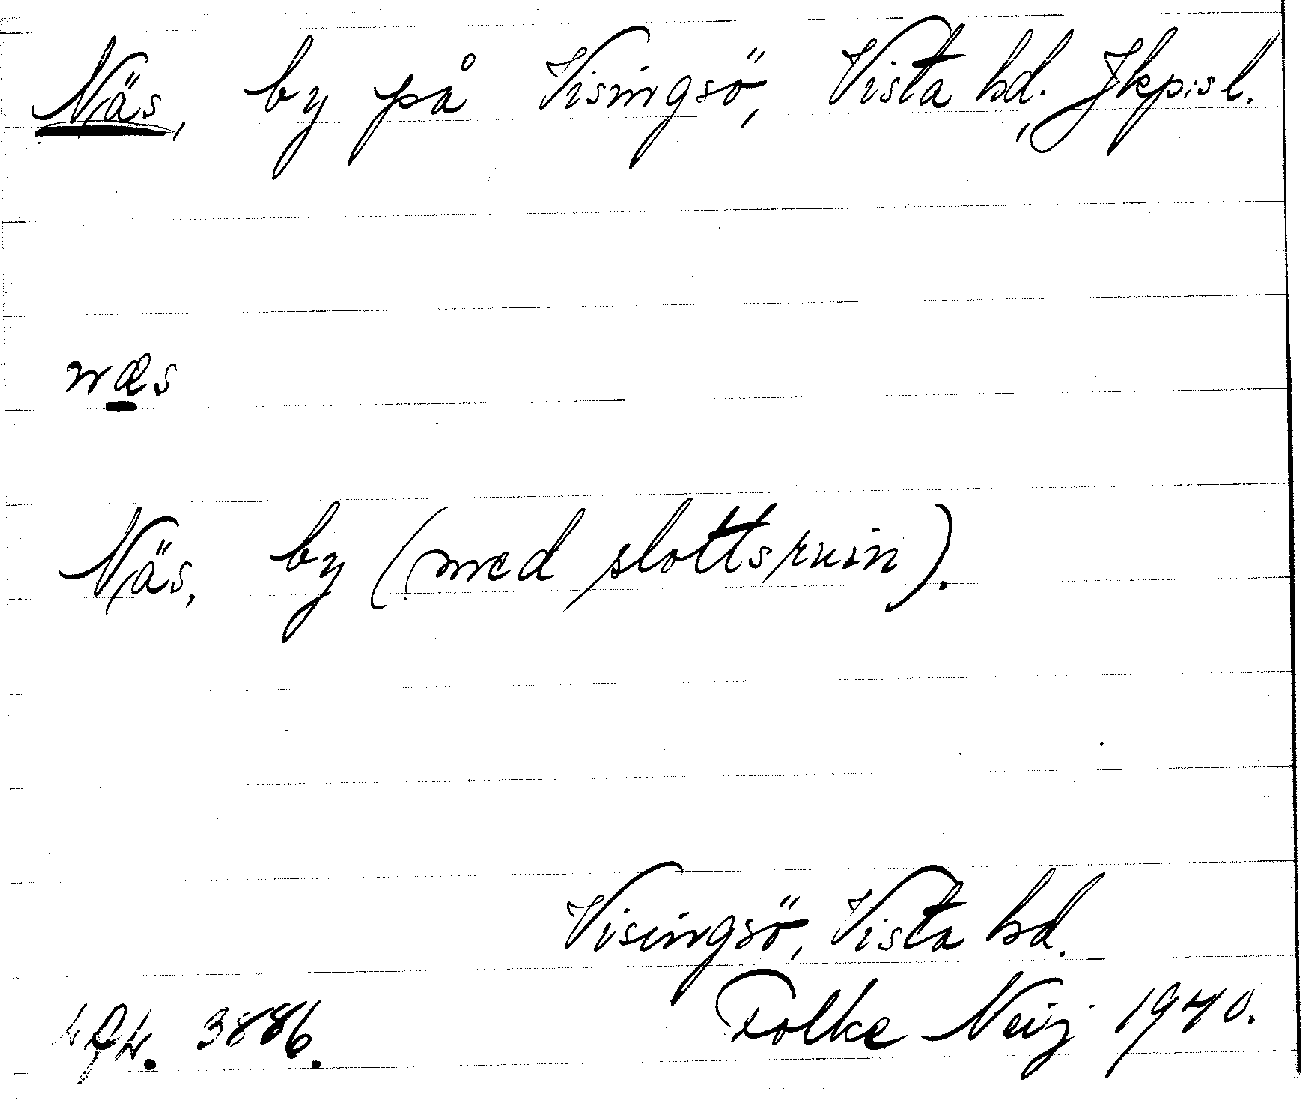 Näs, by på Visingsö, Vista hd, Jkpsl.
næs
Näs, by (med slottsruin).
Visingsö, Vista hd.
3886. Folke Neij 1940.